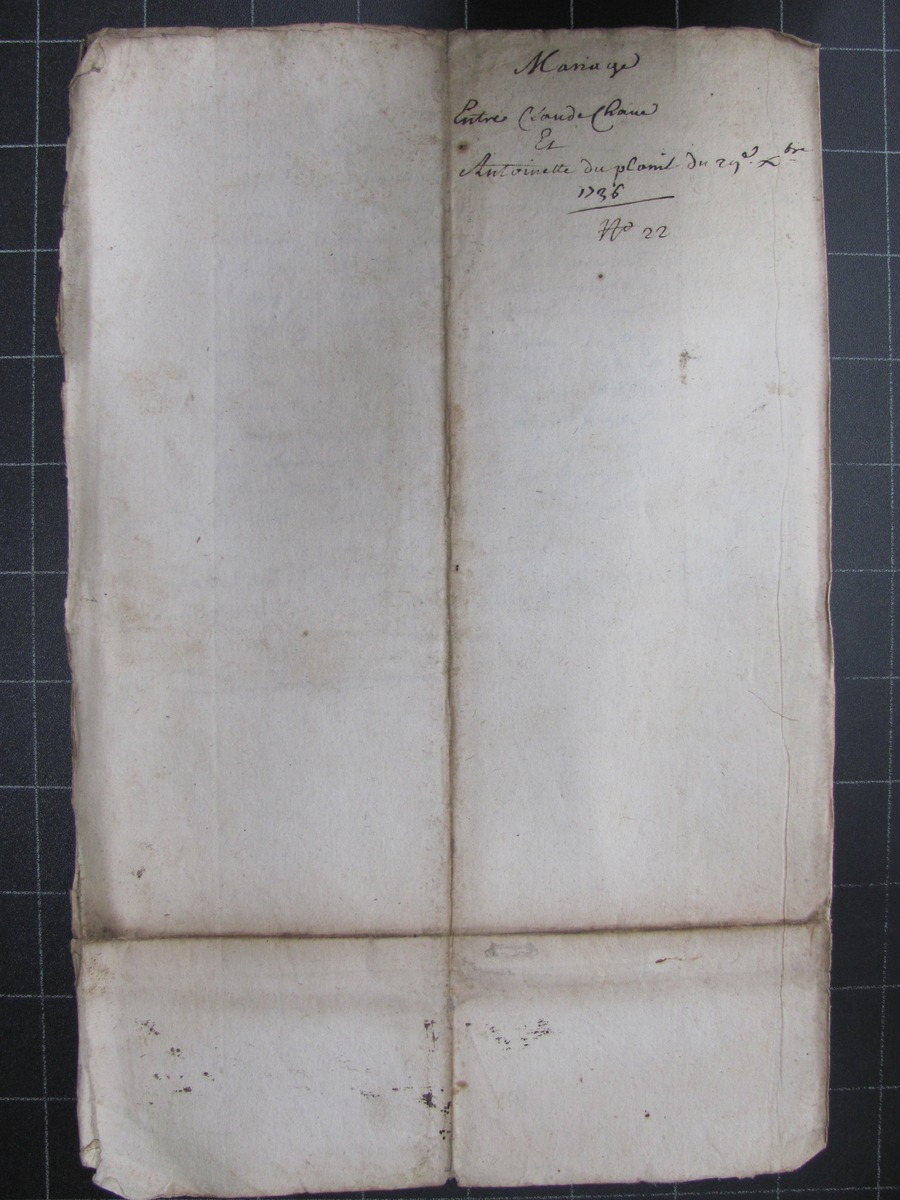 Mariage
Entre Claude Chave
Et
Antoinette du plonit du 29e. Xbre
1736
No 22